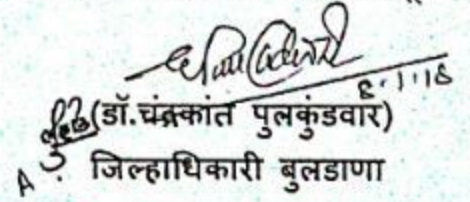 8.1.18
(डॉ.चंद्रकांत पुलकुंडवार)
A जिल्हाधिकारी बुलडाणा